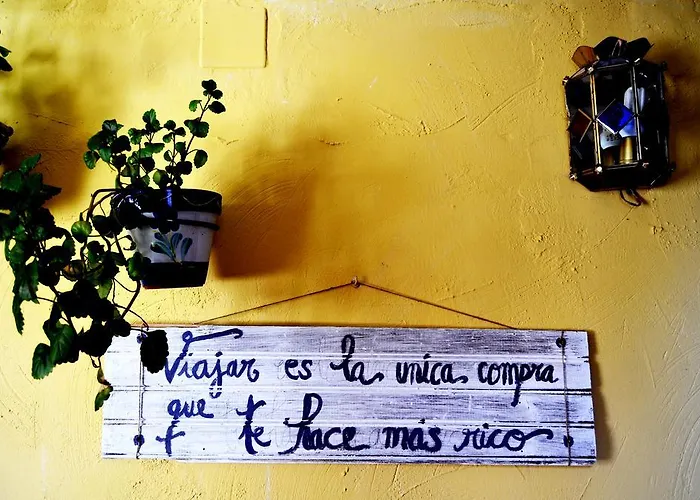 Viajar es la unica compra
que te hace más rico